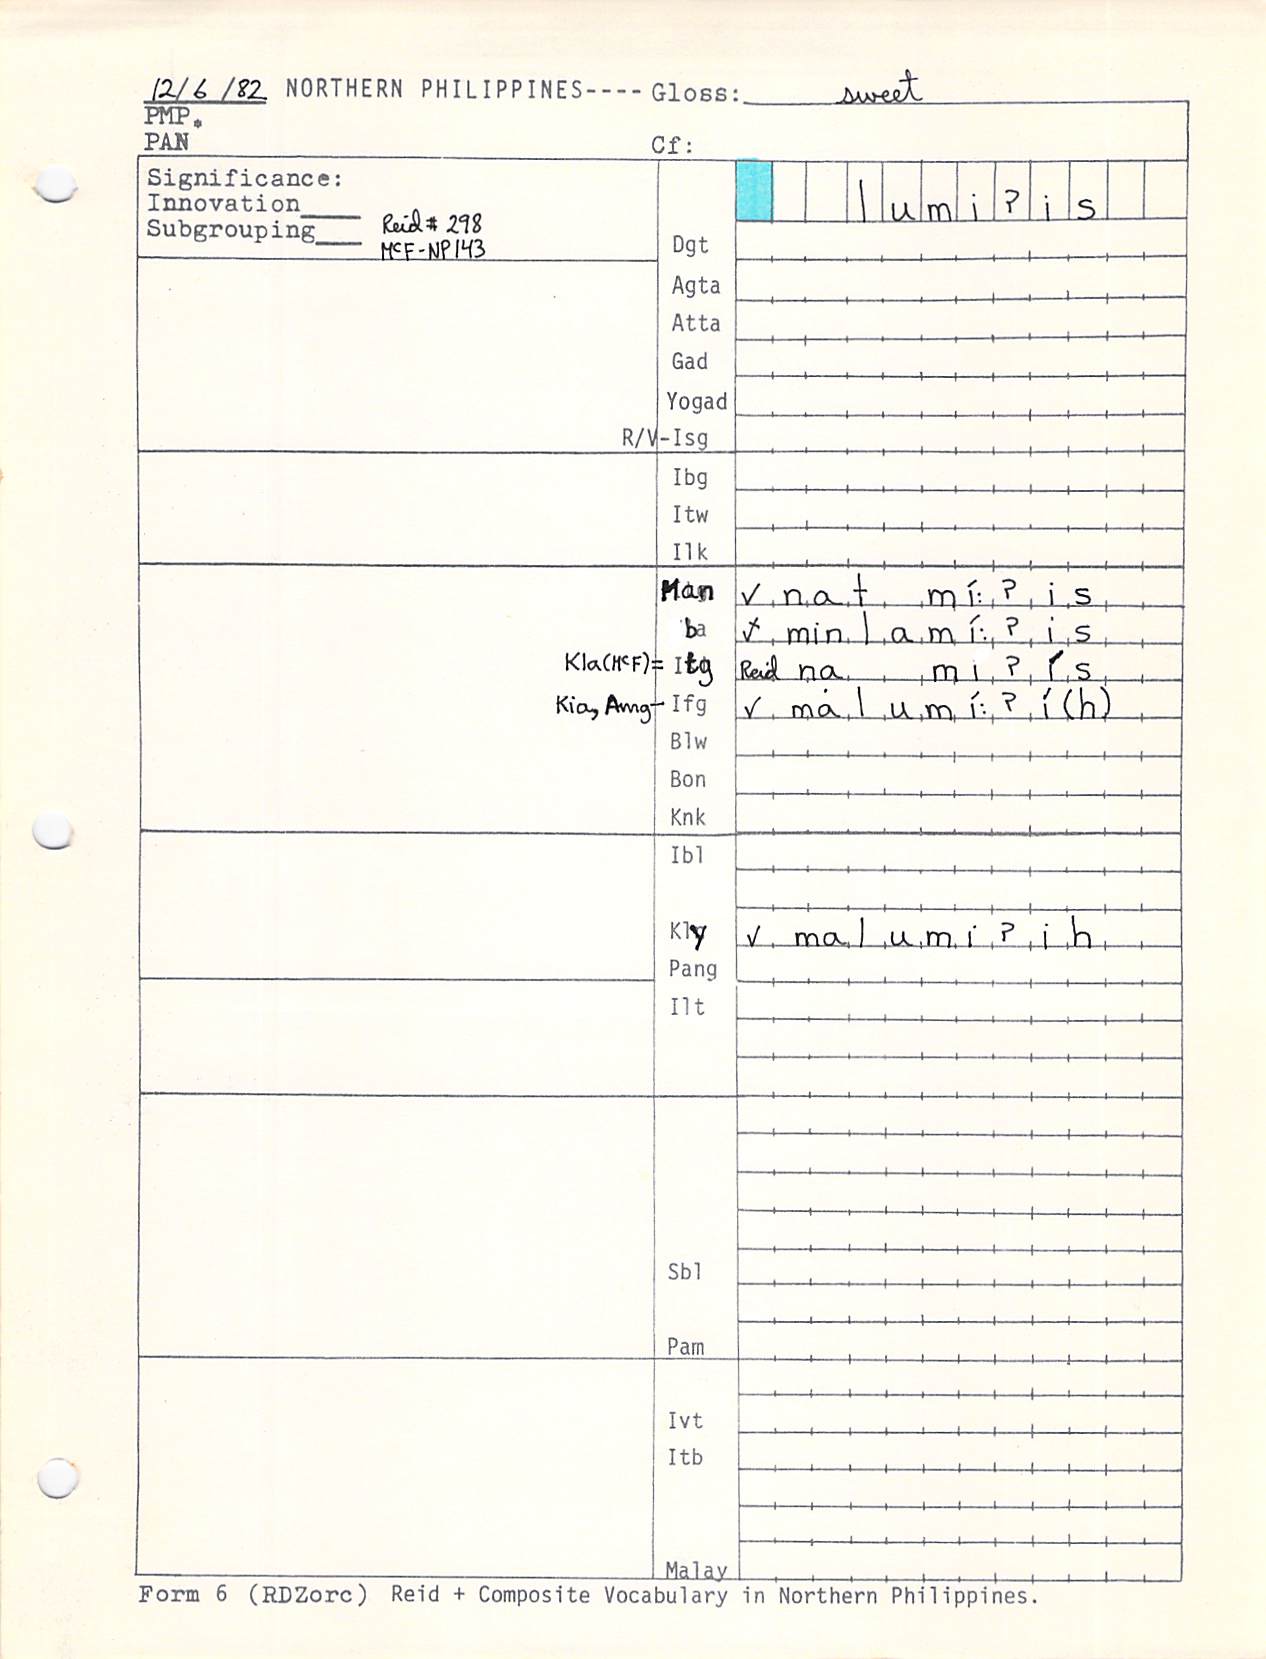 12/6/82 NORTHERN PHILIPPINES---- Gloss: sweet
PMP.
PAN Cf:
Significance:
Innovation____
Subgrouping___ Reid# 298
McF-NP143
lumiʔis
Dgt
Agta
Atta
Gad
Yogad
R/V-Isg
Ibg
Itw
Ilk
Man ✓ nat mí:ʔis
ba ✓ minlamí:ʔis
Kla(McF)= Itg Reid na miʔís
Kia, Amg- Ifg ✓ málumí:ʔí(h)
Blw
Bon
Knk
Ibl
Kly ✓ malumiʔih
Pang
Ilt
Sbl
Pam
Ivt
Itb
Malay
Form 6 (RDZorc) Reid + Composite Vocabulary in Northern Philippines.